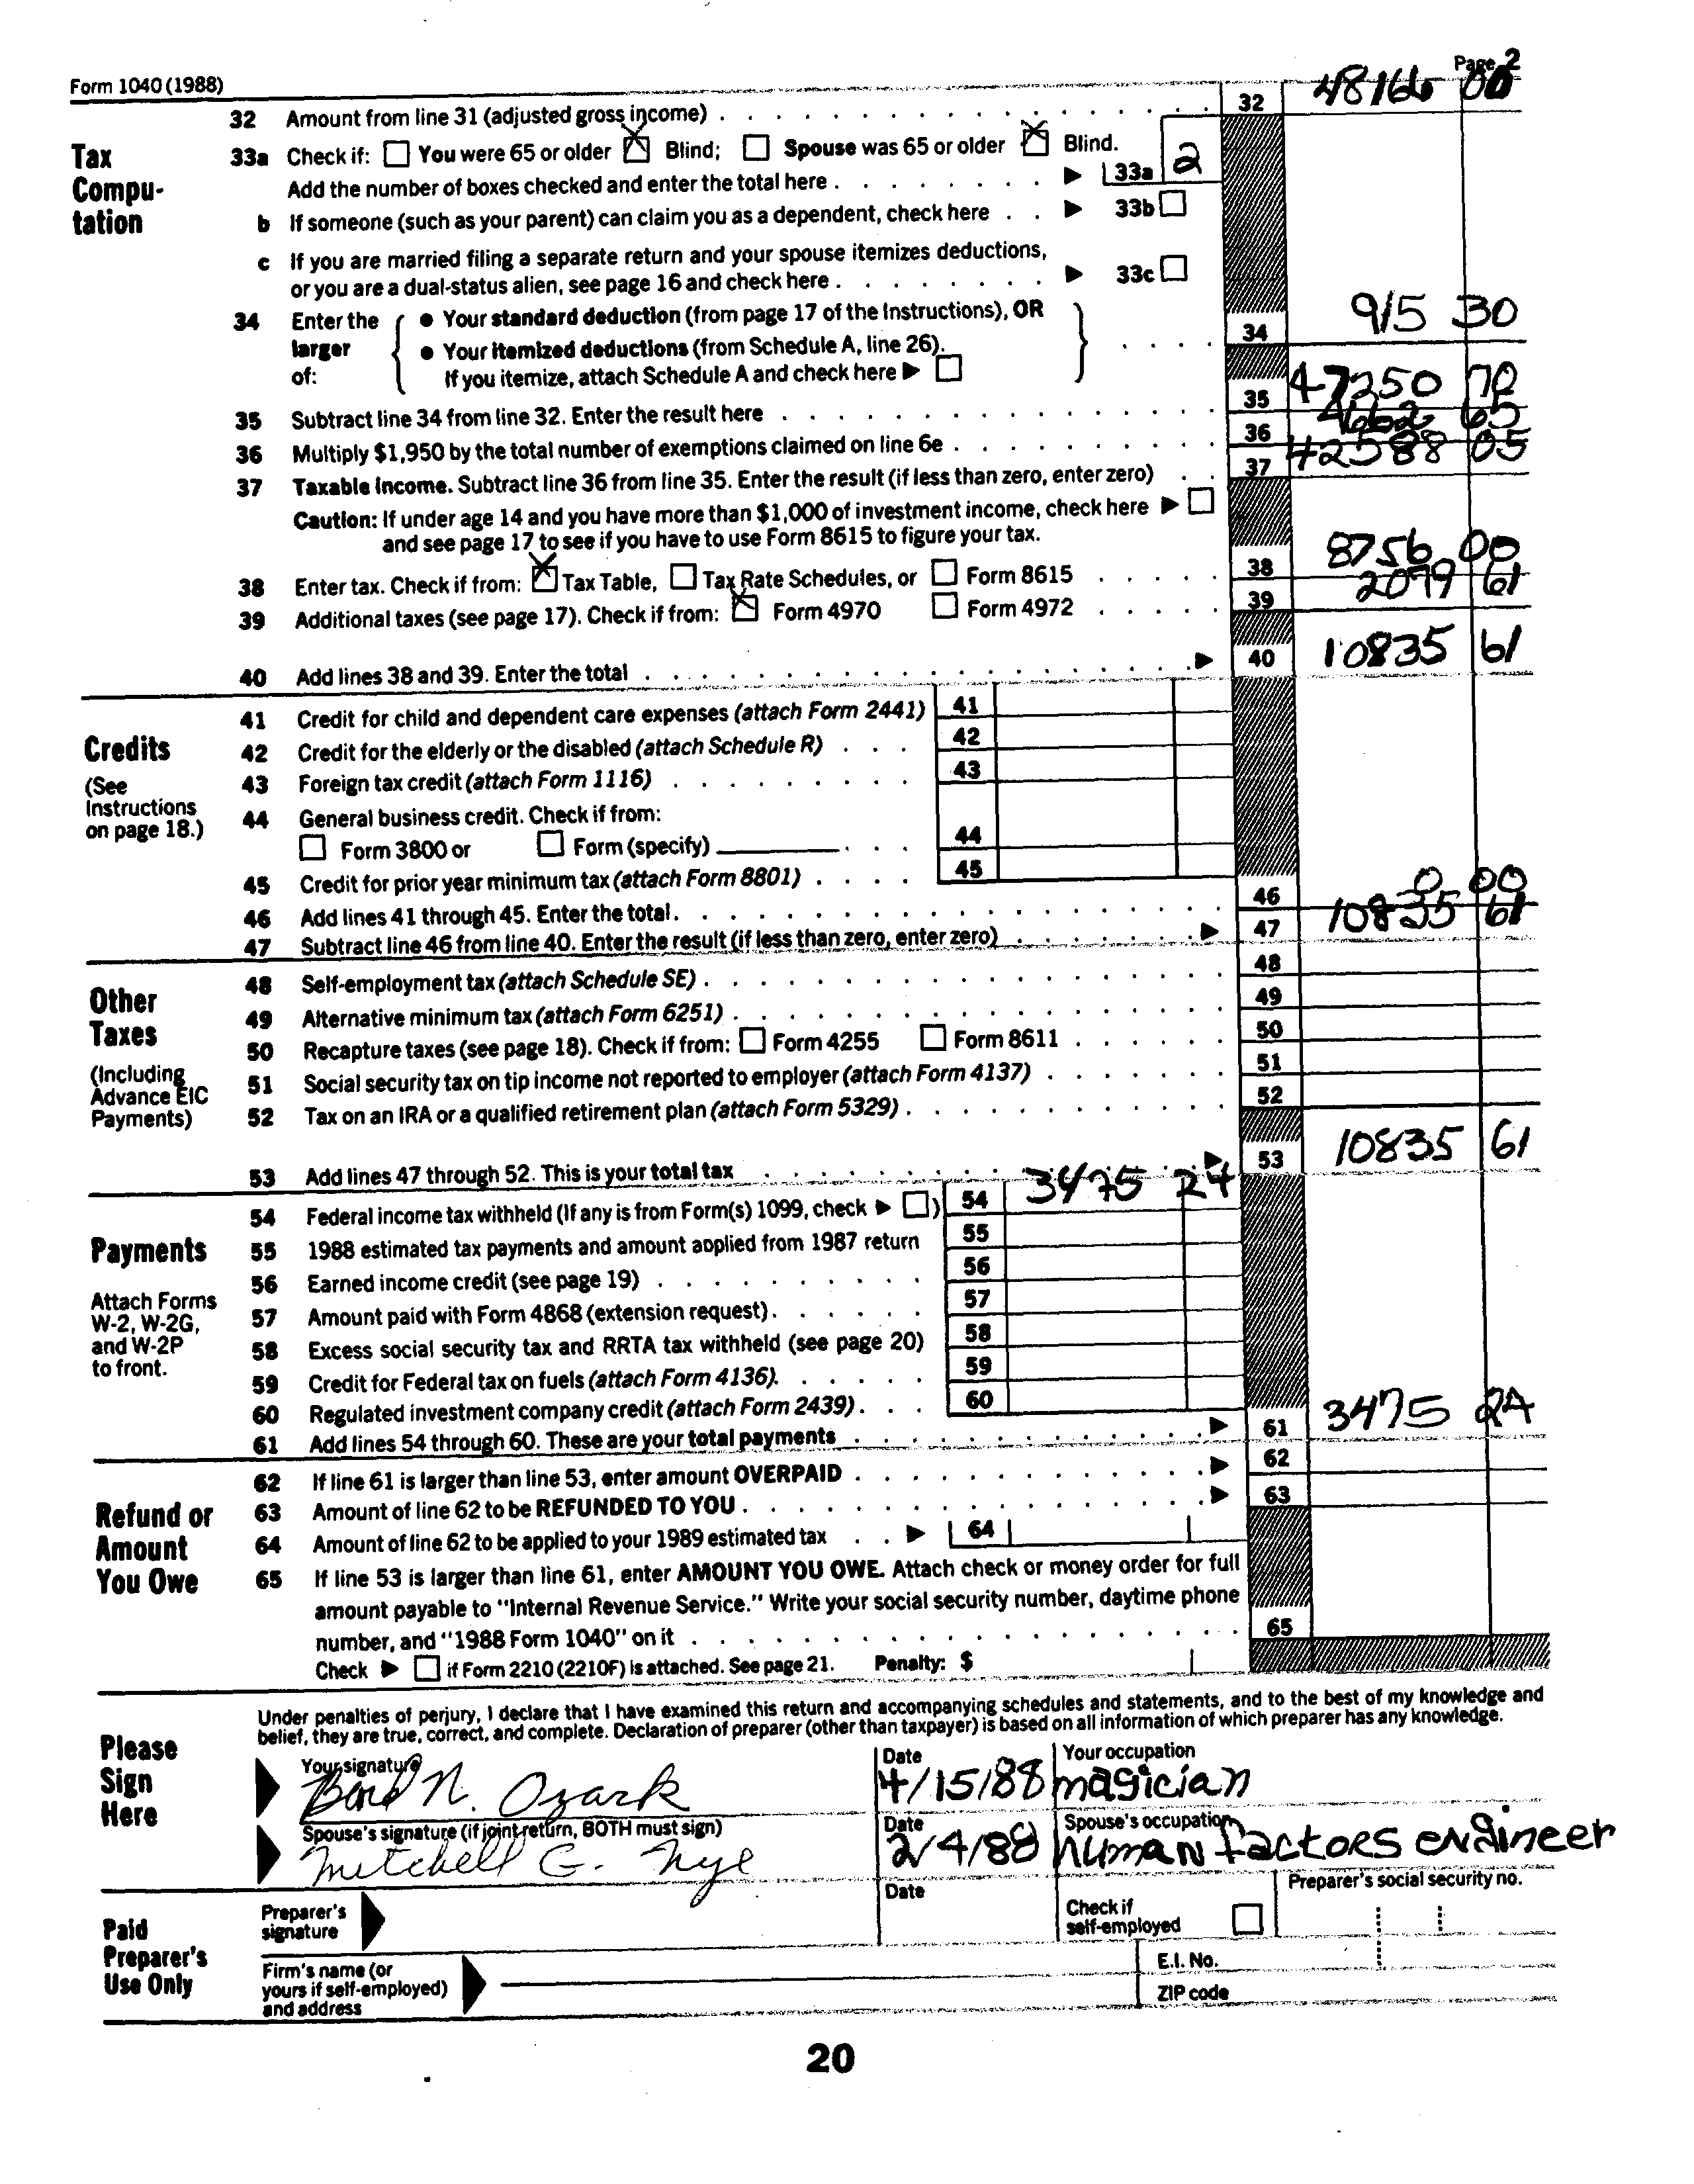 Form 1040 (1988)
Page 2
32 Amount from line 31 (adjusted gross income) 32 48166 00
Tax Computation
33a Check if: You were 65 or older Blind; Spouse was 65 or older Blind.
Add the number of boxes checked and enter the total here 33a 2
b If someone (such as your parent) can claim you as a dependent, check here 33b
c If you are married filing a separate return and your spouse itemizes deductions,
or you are a dual-status alien, see page 16 and check here 33c
34 Enter the larger of:
• Your standard deduction (from page 17 of the Instructions), OR
• Your itemized deductions (from Schedule A, line 26).
If you itemize, attach Schedule A and check here
34 915 30
35 Subtract line 34 from line 32. Enter the result here 35 47250 70
36 Multiply $1,950 by the total number of exemptions claimed on line 6e 36 4662 65
37 Taxable income. Subtract line 36 from line 35. Enter the result (if less than zero, enter zero) 37 42588 05
Caution: If under age 14 and you have more than $1,000 of investment income, check here
and see page 17 to see if you have to use Form 8615 to figure your tax.
38 Enter tax. Check if from: Tax Table, Tax Rate Schedules, or Form 8615 38 8756 00
39 Additional taxes (see page 17). Check if from: Form 4970 Form 4972 39 2079 61
40 Add lines 38 and 39. Enter the total 40 10835 61
Credits
(See Instructions on page 18.)
41 Credit for child and dependent care expenses (attach Form 2441) 41
42 Credit for the elderly or the disabled (attach Schedule R) 42
43 Foreign tax credit (attach Form 1116) 43
44 General business credit. Check if from:
Form 3800 or Form (specify) 44
45 Credit for prior year minimum tax (attach Form 8801) 45
46 Add lines 41 through 45. Enter the total. 46 0 00
47 Subtract line 46 from line 40. Enter the result (if less than zero, enter zero) 47 10835 61
Other Taxes
(Including Advance EIC Payments)
48 Self-employment tax (attach Schedule SE) 48
49 Alternative minimum tax (attach Form 6251) 49
50 Recapture taxes (see page 18). Check if from: Form 4255 Form 8611 50
51 Social security tax on tip income not reported to employer (attach Form 4137) 51
52 Tax on an IRA or a qualified retirement plan (attach Form 5329) 52
53 Add lines 47 through 52. This is your total tax 53 10835 61
Payments
Attach Forms W-2, W-2G, and W-2P to front.
54 Federal income tax withheld (If any is from Form(s) 1099, check ) 54 3475 24
55 1988 estimated tax payments and amount applied from 1987 return 55
56 Earned income credit (see page 19) 56
57 Amount paid with Form 4868 (extension request) 57
58 Excess social security tax and RRTA tax withheld (see page 20) 58
59 Credit for Federal tax on fuels (attach Form 4136). 59
60 Regulated investment company credit (attach Form 2439) 60
61 Add lines 54 through 60. These are your total payments 61 3475 24
Refund or Amount You Owe
62 If line 61 is larger than line 53, enter amount OVERPAID 62
63 Amount of line 62 to be REFUNDED TO YOU 63
64 Amount of line 62 to be applied to your 1989 estimated tax 64
65 If line 53 is larger than line 61, enter AMOUNT YOU OWE. Attach check or money order for full
amount payable to "Internal Revenue Service." Write your social security number, daytime phone
number, and "1988 Form 1040" on it 65
Check if Form 2210 (2210F) is attached. See page 21. Penalty: $
Please Sign Here
Under penalties of perjury, I declare that I have examined this return and accompanying schedules and statements, and to the best of my knowledge and
belief, they are true, correct, and complete. Declaration of preparer (other than taxpayer) is based on all information of which preparer has any knowledge.
Your signature Date Your occupation
N. Ozark 4/15/88 magician
Spouse's signature (if joint return, BOTH must sign) Date Spouse's occupation
Mitchell G. Nye 2/4/88 human factors engineer
Paid Preparer's Use Only
Preparer's signature Date Check if self-employed Preparer's social security no.
Firm's name (or yours if self-employed) and address
E.I. No.
ZIP code
20